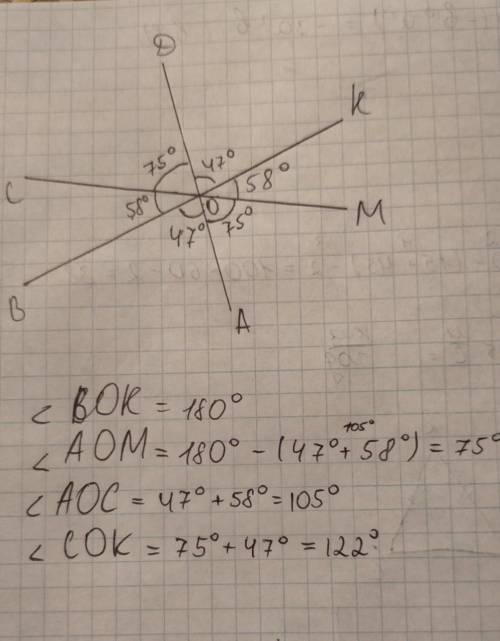 D
K
75°
47°
58°
C
58°
O
M
47°
75°
B
A
∠ BOK = 180°
105°
∠ AOM = 180° - (47° + 58°) = 75°
∠ AOC = 47° + 58° = 105°
∠ COK = 75° + 47° = 122°